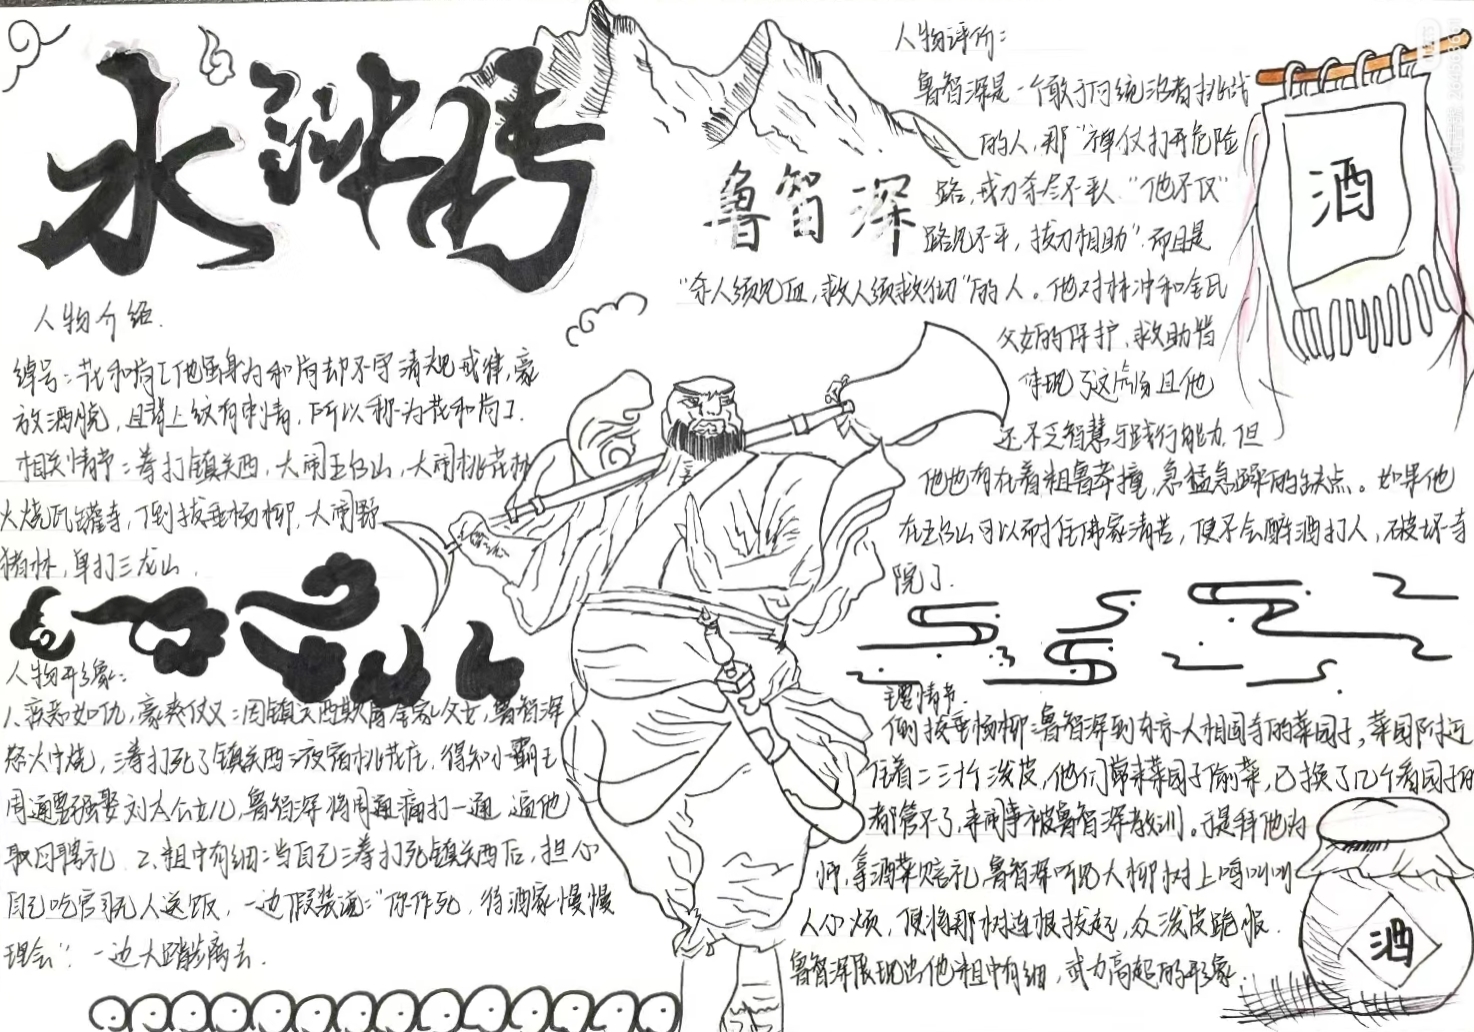 水浒传
鲁智深
人物介绍.
绰号:花和尚[他虽身为和尚却不守清规戒律,豪
放洒脱,且背上纹有刺青,所以称为花和尚].
相关情节:拳打镇关西,大闹五台山,大闹桃花村
火烧瓦罐寺,倒拔垂杨柳,大闹野
猪林,单打二龙山.
人物形象:
1.疾恶如仇,豪爽仗义:因镇关西欺辱金家父女,鲁智深
怒火中烧,三拳打死了镇关西;夜宿桃花庄,得知小霸王
周通要强娶刘太公女儿,鲁智深将周通痛打一通,逼他
取回聘礼.2.粗中有细:当自己三拳打死镇关西后,担心
自己吃官司无人送饭,一边假装说:"你作死,待洒家慢慢
理会".一边大踏步离去.
人物评价:
鲁智深是一个敢于向统治者挑战
的人,那"禅仗打开危险
路,戒刀杀尽不平人."他不仅"
路见不平,拔刀相助".而且是
"杀人须见血,救人须救彻"的人。他对林冲和金氏
父女的保护,救助皆
体现了这点,且他
还不乏智慧与践行能力.但
他也存在着粗鲁莽撞,急猛急躁的缺点。如果他
在五台山可以耐住佛家清苦,便不会醉酒打人,破坏寺
院了.
主要情节.
倒拔垂杨柳:鲁智深到东京大相国寺的菜园子,菜园附近
住着二三十个泼皮,他们常来菜园子偷菜,已换了几个看园子的
都管不了,来闹事被鲁智深教训。于是拜他为
师,拿酒菜赔礼,鲁智深听见大柳树上鸣叫叫
人心烦,便将那树连根拔起,众泼皮跪服.
鲁智深展现出他粗中有细,武力高超的形象.
酒
酒